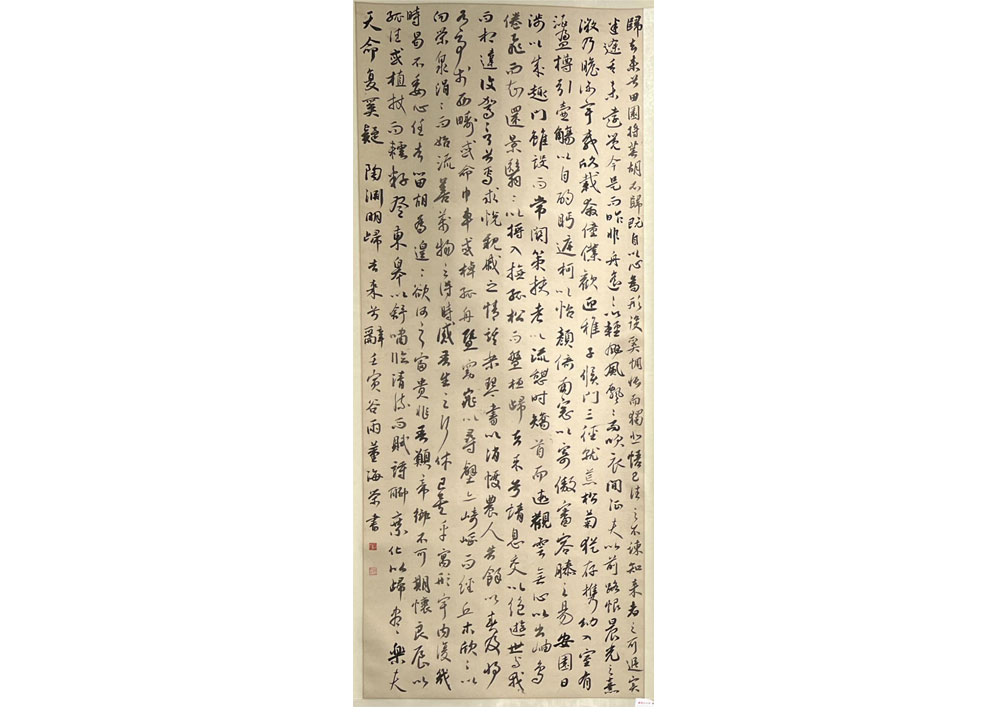 歸去來兮田園將蕪胡不歸既自以心為形役奚惆悵而獨悲悟已往之不諫知來者之可追實
迷途其未遠覺今是而昨非舟遙々以輕颺風飄々而吹衣問征夫以前路恨晨光之熹
微乃瞻衡宇載欣載奔僮僕歡迎稚子候門三徑就荒松菊猶存攜幼入室有
酒盈樽引壺觴以自酌眄庭柯以怡顏倚南窗以寄傲審容膝之易安園日
涉以成趣門雖設而常關策扶老以流憩時矯首而遐觀雲無心以出岫鳥
倦飛而知還景翳々以將入撫孤松而盤桓歸去來兮請息交以絕遊世與我
而相違復駕言兮焉求悅親戚之情話樂琴書以消憂農人告餘以春及將
有事於西疇或命巾車或棹孤舟暨窈窕以尋壑亦崎嶇而經丘木欣々以
向榮泉涓々而始流善萬物之得時感吾生之行休已矣乎寓形宇內復幾
時曷不委心任去留胡為遑々欲何之富貴非吾願帝鄉不可期懷良辰以
孤往或植杖而耘耔登東皋以舒嘯臨清流而賦詩聊乘化以歸盡樂夫
天命復奚疑 陶淵明歸去來兮辭 壬寅谷雨董海榮書